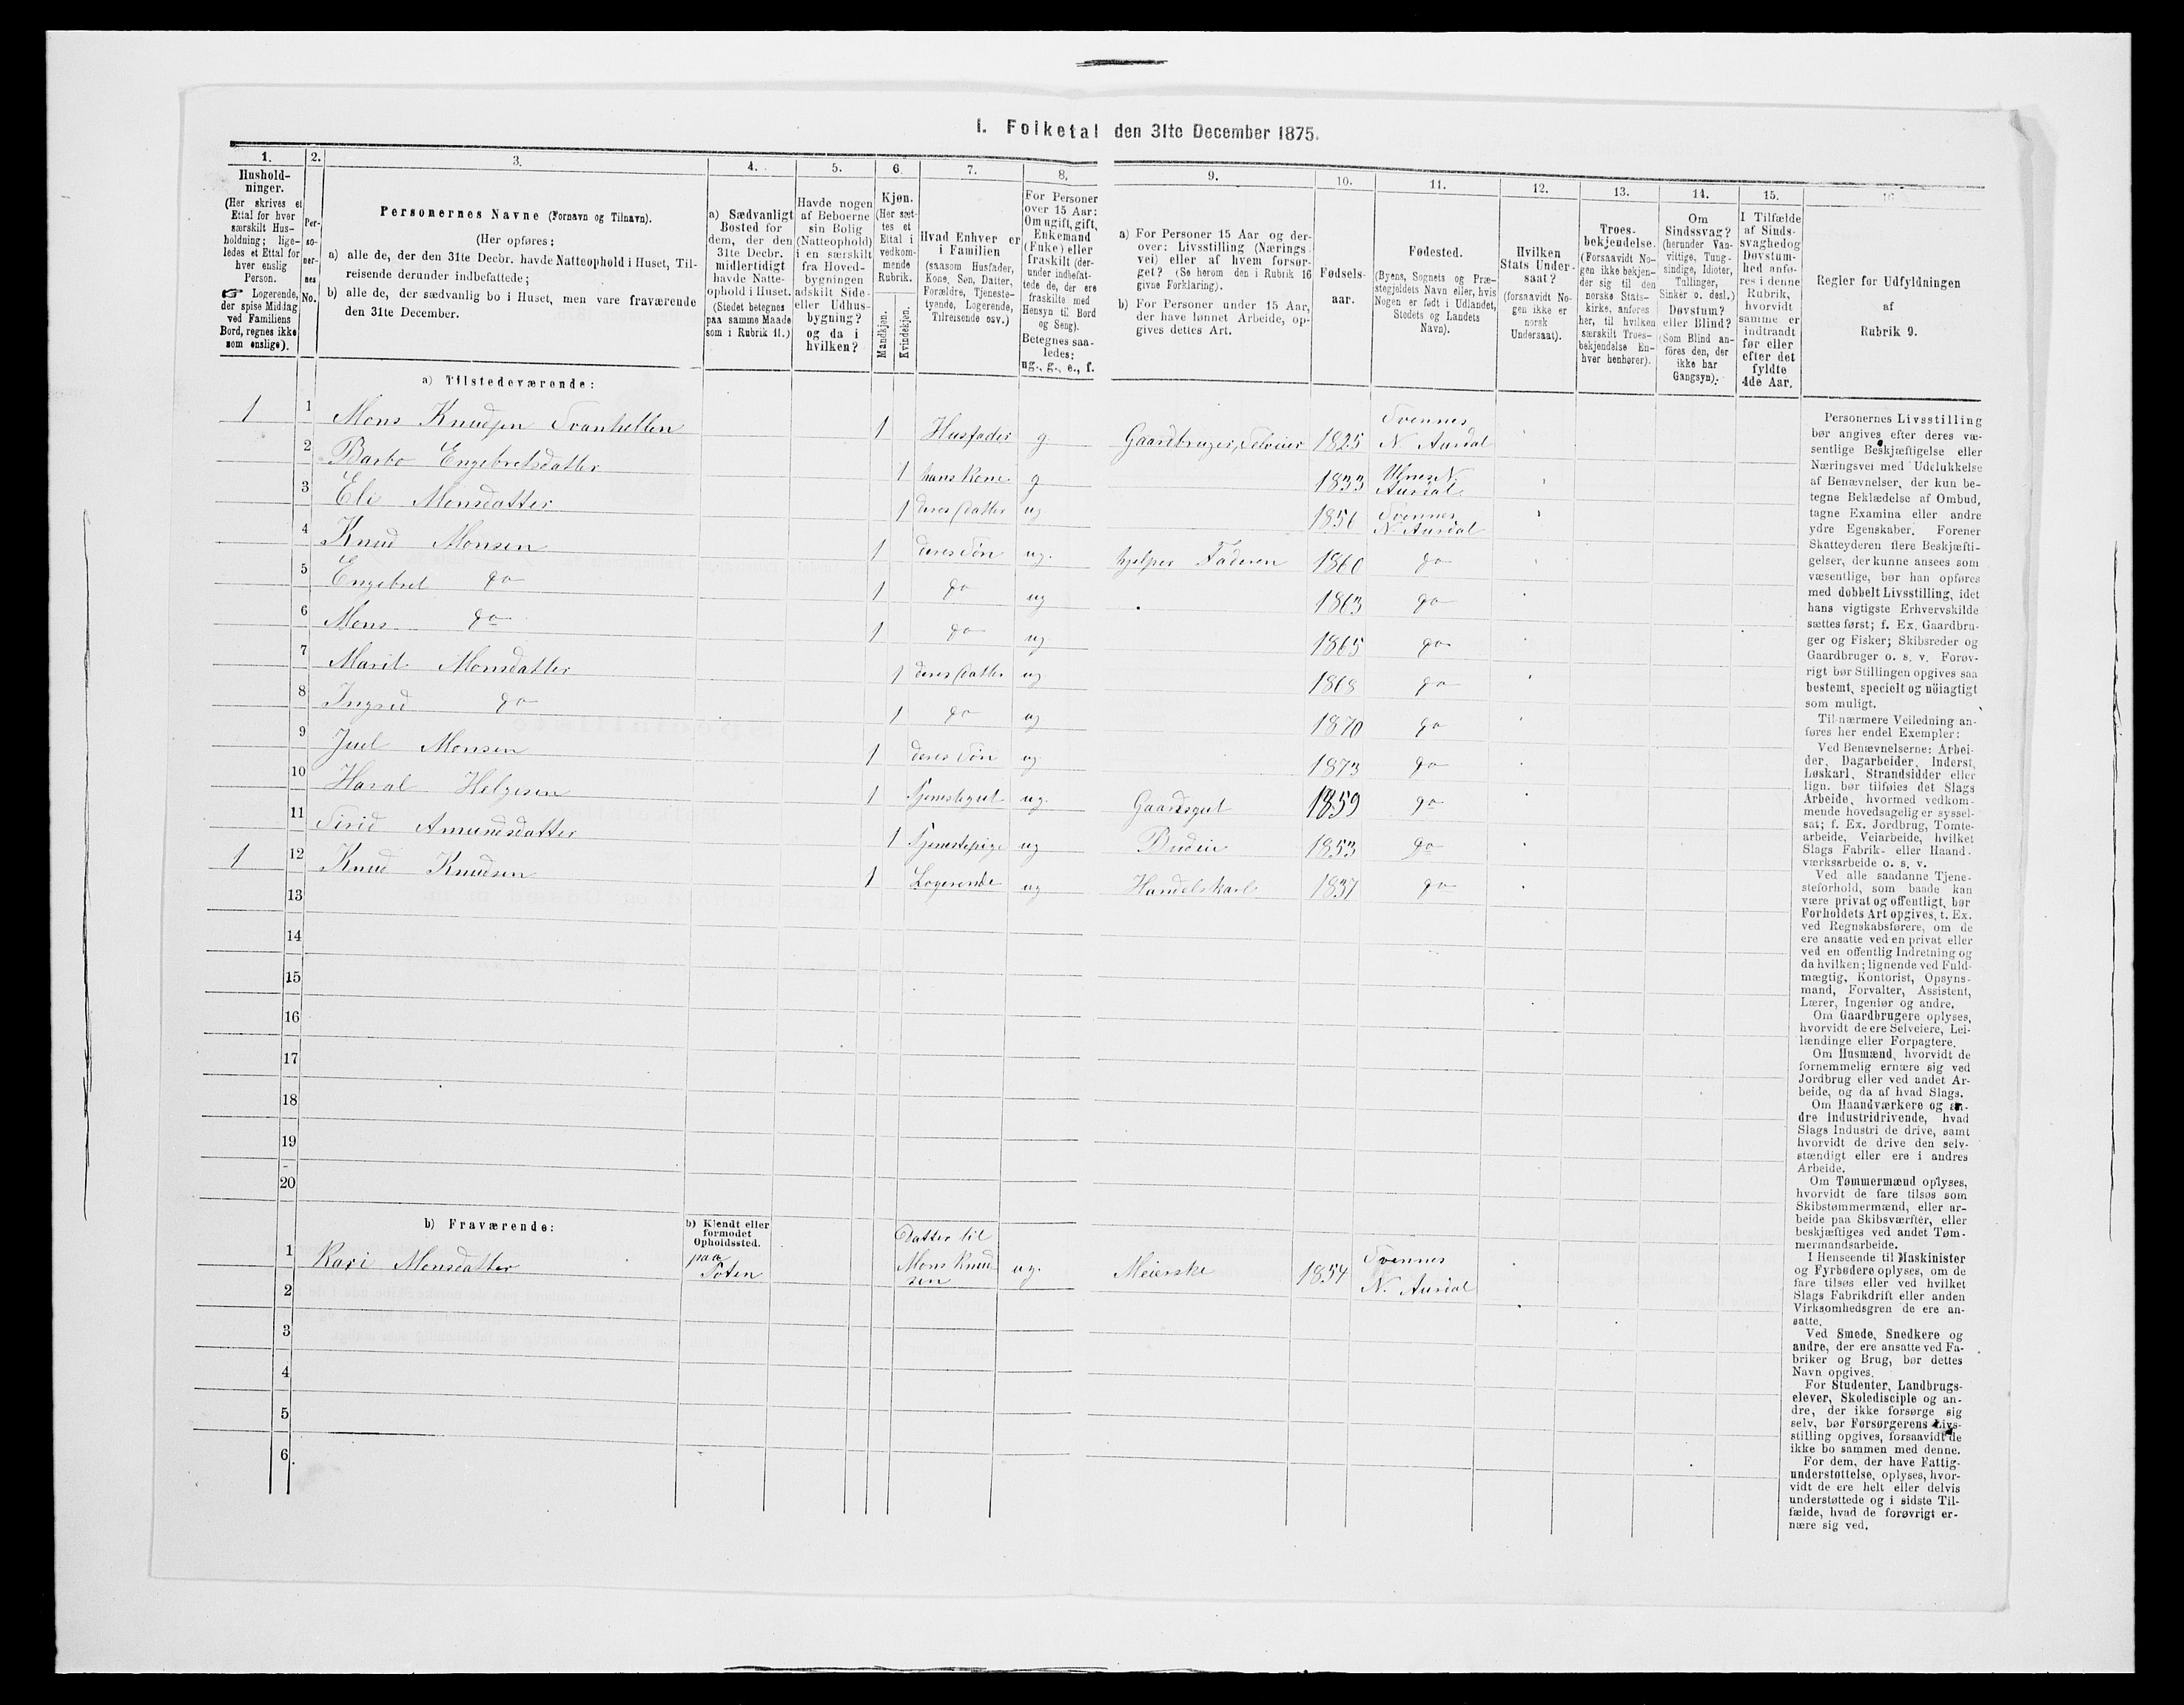 I. Folketal den 31te December 1875.
1. 2. 3. 4. 5. 6. 7. 8. 9. 10. 11. 12. 13. 14. 15. 16
Hushold-
ninger.
(Her skrives et
Ettal for hver
særskilt Hus-
holdning; lige-
ledes et Ettal for
hver enslig
Person.
☞ Logerende,
der spise Middag
ved Familiens
Bord, regnes ikke
som enslige).
Per-
so-
ner-
nes
No.
Personernes Navne (Fornavn og Tilnavn).
(Her opføres:
a) alle de, der den 31te Decbr. havde Natteophold i Huset, Til-
reisende derunder indbefattede;
b) alle de, der sædvanlig bo i Huset, men vare fraværende
den 31te December.
a) Sædvanligt
Bosted for
dem, der den
31te Decbr.
midlertidigt
havde Natte-
ophold i Huset.
(Stedet betegnes
paa samme Maade
som i Rubrik 11.)
Havde nogen
af Beboerne
sin Bolig
(Natteophold)
i en særskilt
fra Hoved-
bygningen
adskilt Side-
eller Udhus-
bygning?
og da i
hvilken?
Kjøn.
(Her sæt-
tes et
Ettal i
vedkom-
mende
Rubrik.
Mandkjøn.
Kvindekjøn.
Hvad Enhver er
i Familien
(saasom Husfader,
Kone, Søn, Datter,
Forældre, Tjeneste-
tyende, Logerende,
Tilreisende osv.)
For Personer
over 15 Aar:
Om ugift, gift,
Enkemand
(Enke) eller
fraskilt (der-
under indbefat-
tede de, der ere
fraskilte med
Hensyn til Bord
og Seng).
Betegnes saa-
ledes:
ug., g., e., f.
a) For Personer 15 Aar og der-
over: Livsstilling (Nærings-
vei) eller af hvem forsør-
get? (Se herom den i Rubrik 16
givne Forklaring).
b) For Personer under 15 Aar,
der have lønnet Arbeide, op-
gives dettes Art.
Fødsels-
aar.
Fødested.
(Byens, Sognets og Præ-
stegjeldets Navn eller, hvis
Nogen er født i Udlandet,
Stedets og Landets
Navn).
Hvilken
Stats Under-
saat?
(forsaavidt No-
gen ikke er
norsk
Undersaat).
Troes-
bekjendelse.
(Forsaavidt No-
gen ikke bekjen-
der sig til den
norske Stats-
kirke, anføres
her, til hvilken
særskilt Troes-
bekjendelse En-
hver henhører).
Om
Sindssvag?
(herunder Van-
vittige, Tung-
sindige, Idioter,
Tallinger,
Sinker o. desl.)
Døvstum?
eller Blind?
(Som Blind an-
føres den, der
ikke har
Gangsyn).
I Tilfælde
af Sinds-
svaghed og
Døvstum-
hed anfø-
res i denne
Rubrik,
hvorvidt
samme er
indtraadt
før eller
efter det
fyldte
4de Aar.
Regler for Udfyldningen
af
Rubrik 9.
a) Tilstedeværende:
1 1 Mons Knudsen Svanhellen 1 Husfader g Gaardbruger, Selveier 1825 Svennes N. Aurdal
2 Barbo Engebretsdatter 1 hans Kone g 1833 Ulnes N. Aurdal
3 Eli Monsdatter 1 deres Datter ug 1856 Svennes N. Aurdal
4 Knud Monsen 1 deres Søn ug. hjelper Faderen 1860 do
5 Engebret do 1 do ug 1863 do
6 Mons do 1 do ug 1865 do
7 Marit Monsdatter 1 deres Datter ug 1868 do
8 Ingrid do 1 do ug 1870 do
9 Juul Monsen 1 deres Søn ug 1873 do
10 Haral Helgesen 1 Tjenestegut ug. Gaardsgut 1859 do
11 Sirid Amundsdatter 1 Tjenestepige ug Budeie 1853 do
1 12 Knud Knudsen 1 Logerende ug Handelskarl 1837 do
13
14
15
16
17
18
19
20
b) Fraværende:
b) Kjendt eller
formodet
Opholdssted.
1 Kari Monsdatter paa Toten Datter til Mons Knudsen ug. Meierske 1854 Svennes N. Aurdal
2
3
4
5
6.
Personernes Livsstilling
bør angives efter deres væ-
sentlige Beskjæftigelse eller
Næringsvei med Udelukkelse
af Benævnelser, der kun be-
tegne Beklædelse af Ombud,
tagne Examina eller andre
ydre Egenskaber. Forener
Skatteyderen flere Beskjæfti-
gelser, der kunne ansees som
væsentlige, bør han opføres
med dobbelt Livsstilling, idet
hans vigtigste Erhvervskilde
sættes først; f. Ex. Gaardbru-
ger og Fisker; Skibsreder og
Gaardbruger o. s. v. Forøv-
rigt bør Stillingen opgives saa
bestemt, specielt og nöiagtigt
som muligt.
Til nærmere Veiledning an-
føres her endel Exempler:
Ved Benævnelserne: Arbei-
der, Dagarbeider, Inderst,
Løskarl, Strandsidder eller
lign. bør tilføies det Slags
Arbeide, hvormed vedkom-
mende hovedsagelig er syssel-
sat; f. Ex. Jordbrug, Tomte-
arbeide, Veiarbeide, hvilket
Slags Fabrik- eller Haand-
værksarbeide o. s. v.
Ved alle saadanne Tjene-
steforhold, som baade kan
være privat og offentligt, bør
Forholdets Art opgives, t. Ex.
ved Regnskabsførere, om de
ere ansatte ved en privat eller
ved en offentlig Indretning og
da hvilken; lignende ved Fuld-
mægtig, Kontorist, Opsyns-
mand, Forvalter, Assistent,
Lærer, Ingeniør og andre.
Om Gaardbrugere oplyses,
hvorvidt de ere Selveiere, Lei-
lændinge eller Forpagtere.
Om Husmænd, hvorvidt de
fornemmelig ernære sig ved
Jordbrug eller ved andet Ar-
beide, og da af hvad Slags.
Om Haandværkere og an-
dre Industridrivende, hvad
Slags Industri de drive, samt
hvorvidt de drive den selv-
stændigt eller ere i andres
Arbeide.
Om Tømmermænd oplyses,
hvorvidt de fare tilsøs som
Skibstømmermænd, eller ar-
beide paa Skibsværfter, eller
beskjæftiges ved andet Tøm-
mermandsarbeide.
I Henseende til Maskinister
og Fyrbødere oplyses, om de
fare tilsøs eller ved hvilket
Slags Fabrikdrift eller anden
Virksomhedsgren de ere an-
satte.
Ved Smede, Snedkere og
andre, der ere ansatte ved Fa-
briker og Brug, bør dettes
Navn opgives.
For Studenter, Landbrugs-
elever, Skoledisciple og an-
dre, der ikke forsørge sig
selv, bør Forsørgerens Livs-
stilling opgives, forsaavidt de
ikke bo sammen med denne.
For dem, der have Fattig-
understøttelse, oplyses, hvor-
vidt de ere helt eller delvis
understøttede og i sidste Til-
fælde, hvad de forøvrigt er-
nære sig ved.